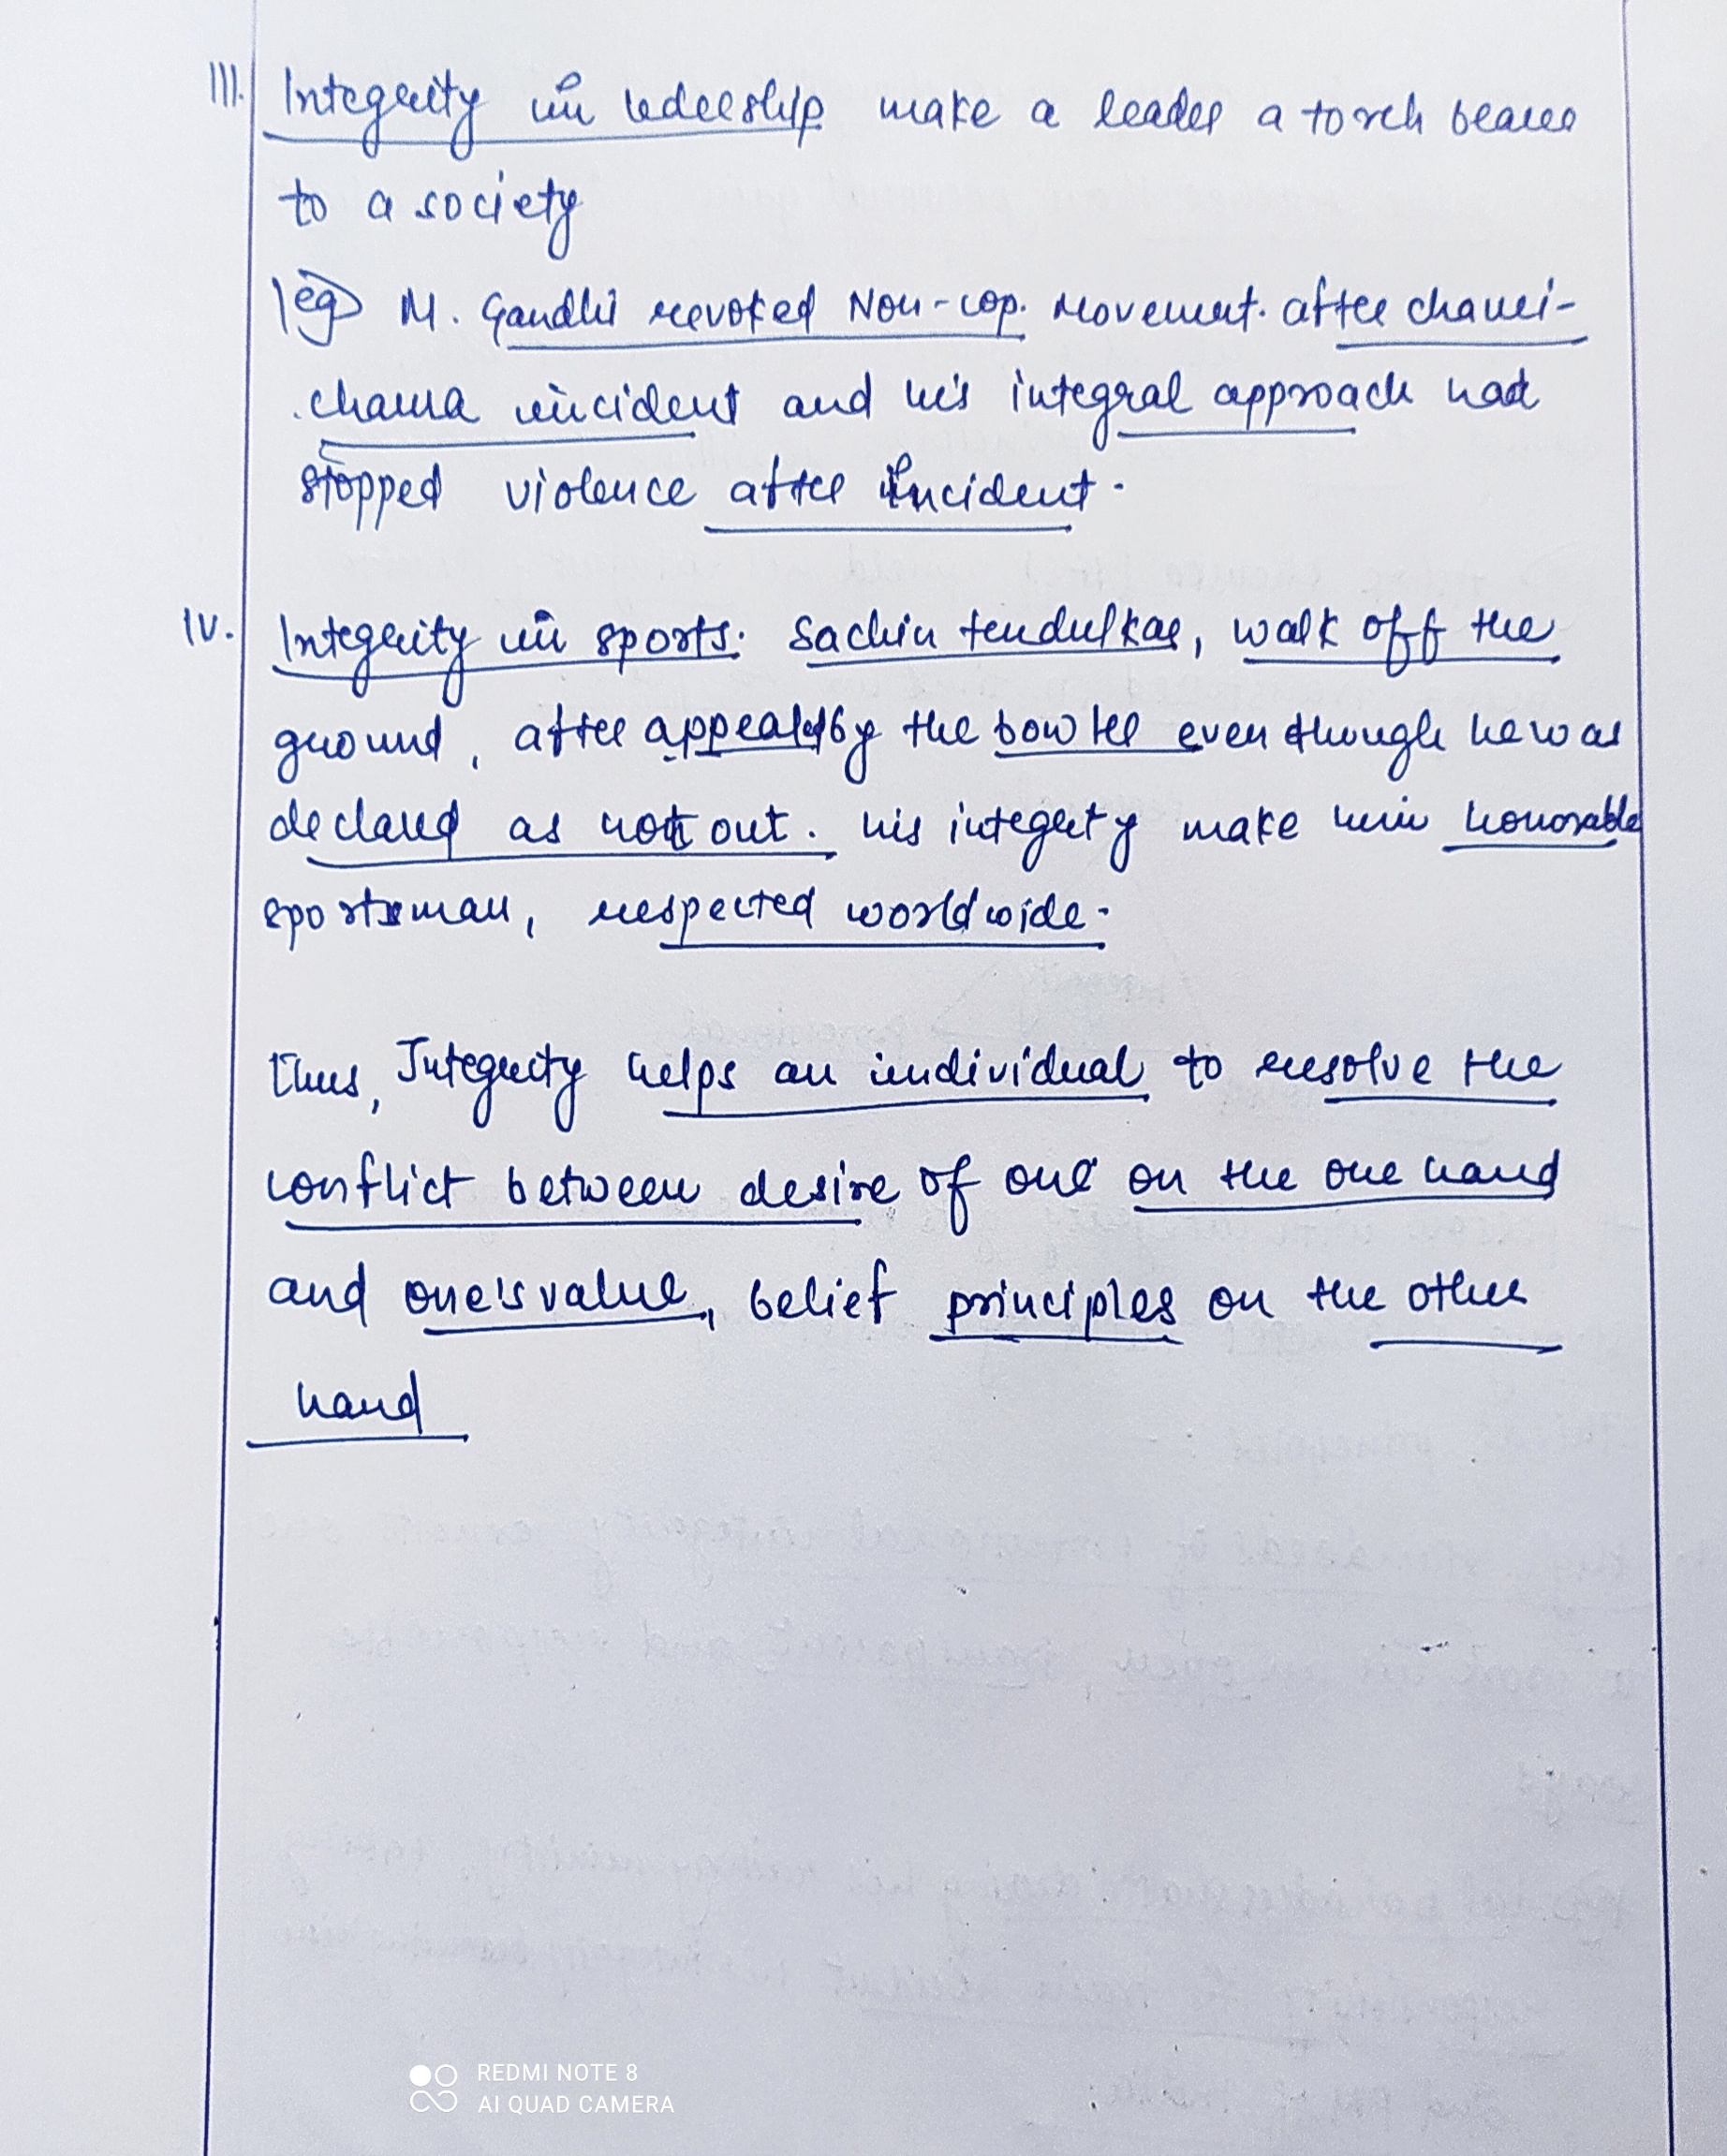 III. Integrity in ledership make a leader a torch bearer
to a society
eg) M. Gandhi revoked Non-cop. Movement. after chauri-
chaura incident and his integral approach had
stopped violence after incident.
IV. Integrity in sports: Sachin tendulkar, walk off the
ground, after appealed by the bowler even though he was
declared as not out. his integrity make him honorable
sportsman, respected worldwide.
Thus, Integrity helps an individual to resolve the
conflict between desire of one on the one hand
and one's value, belief principles on the other
hand
REDMI NOTE 8
AI QUAD CAMERA